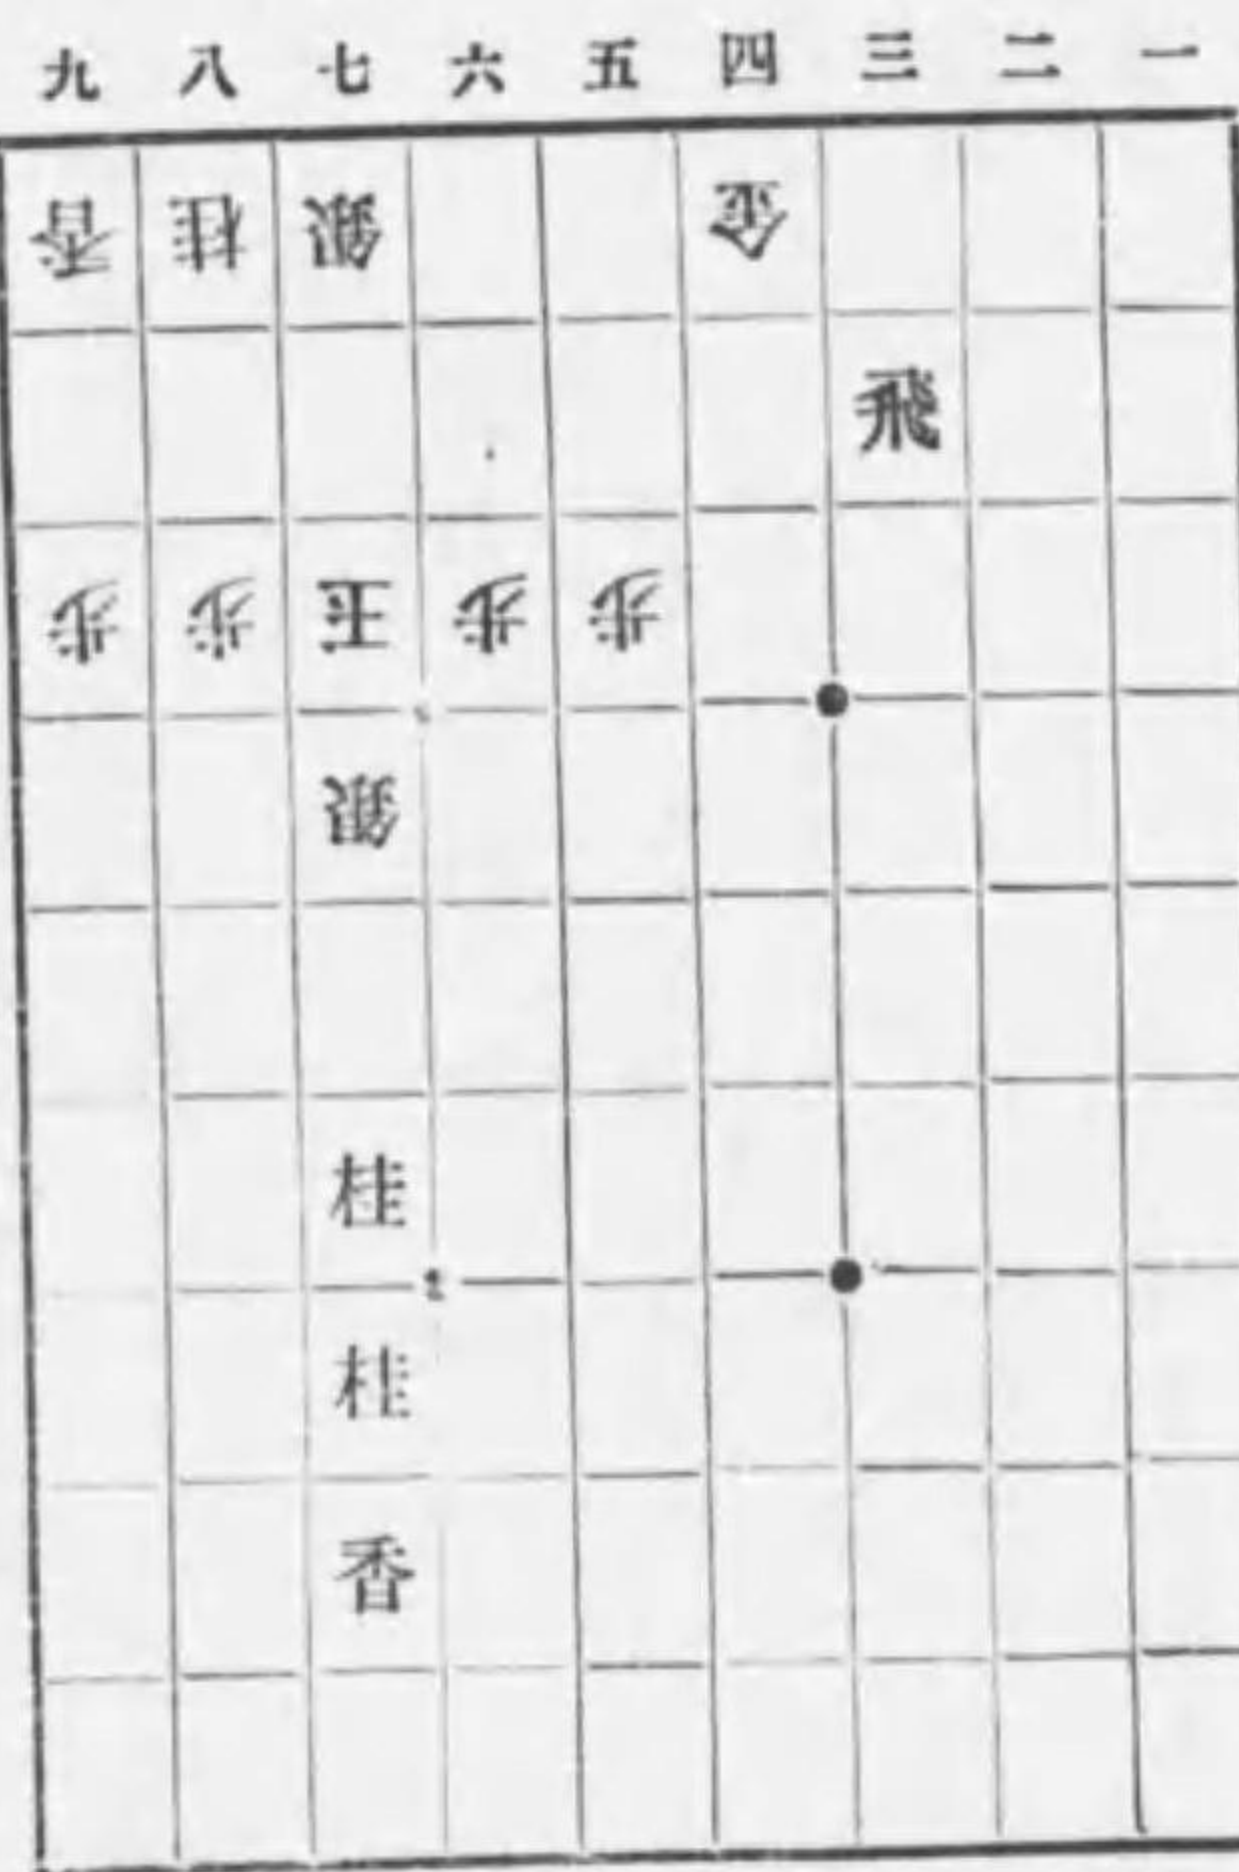 九 八 七 六 五 四 三 二 一
香 桂 銀 金
飛
歩 歩 玉 歩 歩
銀
桂
桂
香